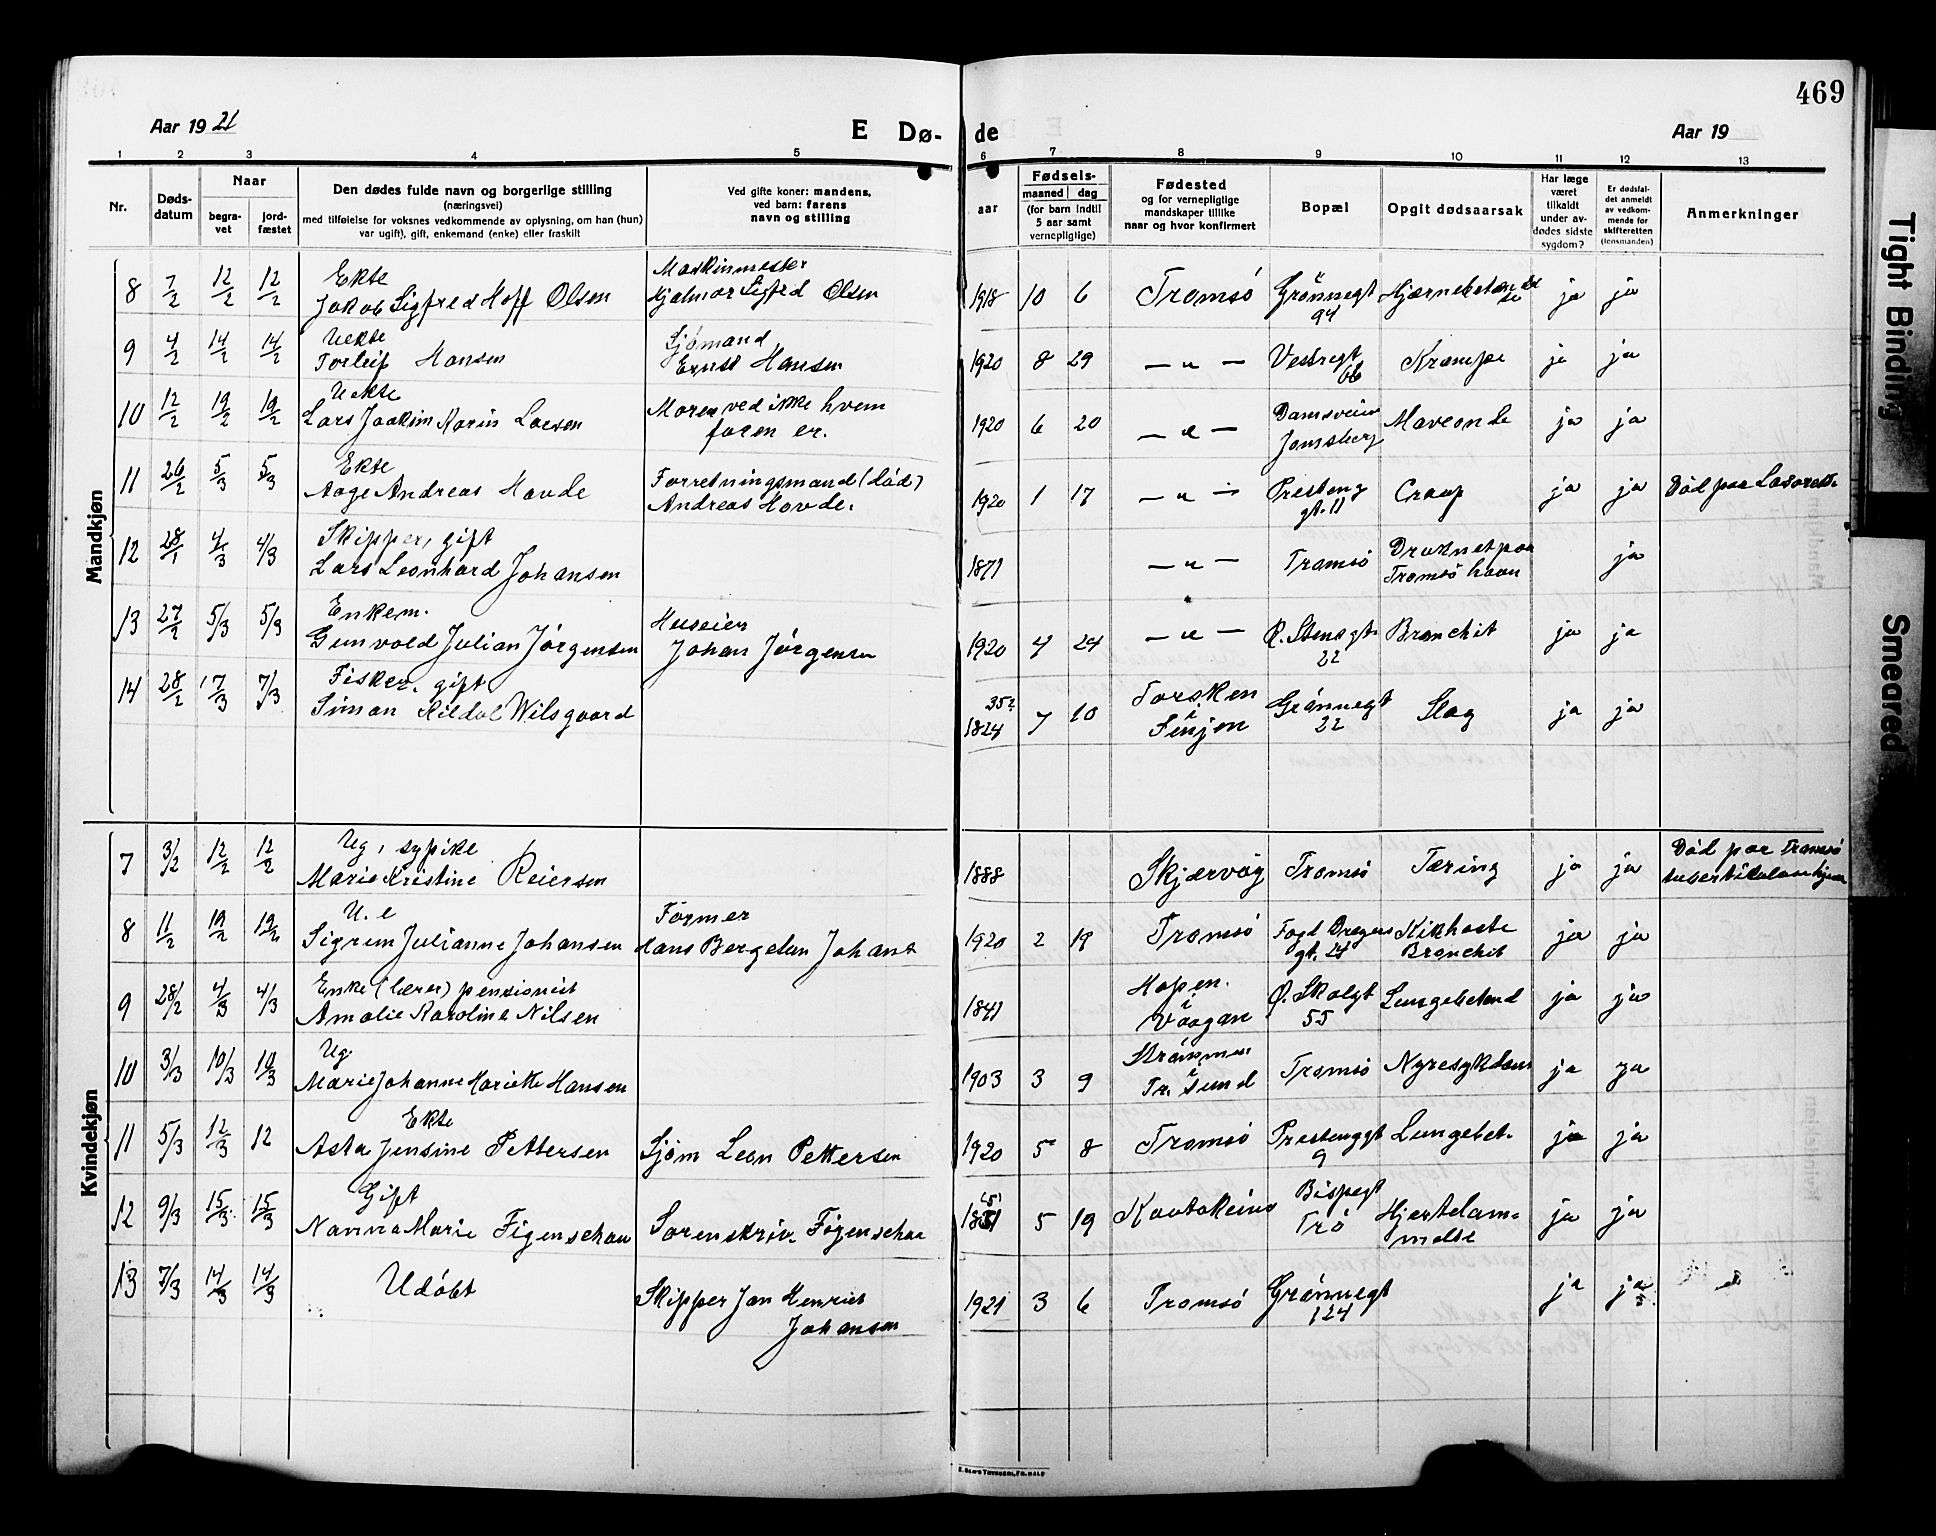 469
Aar 19 21
E Dø-
de
Aar 19
1 2 3 4 5 6 7 8 9 10 11 12 13
Nr.
Døds-
datum
Naar
begra-
vet
jord-
fæstet
Den dødes fulde navn og borgerlige stilling
(næringsvei)
med tilføielse for voksnes vedkommende av oplysning, om han (hun)
var ugift), gift, enkemand (enke) eller fraskilt
Ved gifte koner: mandens,
ved barn: farens
navn og stilling
Fødsels-
aar
maaned dag
(for barn indtil
5 aar samt
vernepligtige)
Fødested
og for vernepligtige
mandskaper tillike
naar og hvor konfirmert
Bopæl
Opgit dødsaarsak
Har læge
været
tilkaldt
under av-
dødes sidste
sygdom?
Er dødsfal-
det anmeldt
av vedkom-
mende for
skifteretten
(lensmanden)
Anmerkninger
Mandkjøn
8 7/2 12/2 12/2 Ekte Maskinmester
Jakob Sigfred Hoff Olsen Hjalmar Sigfrd Olsen 1918 10 6 Tromsö Grönnegt 94 ja ja
9 4/2 14/2 14/2 Uekte Sjømand
Torleif Hansen Ernst Hansen 1920 8 29 — " — Vestregt 66 Krampe ja ja
10 12/2 19/2 19/2 Uekte
Lars Joakim Marin Larsen Moren ved ikke hvem
faren er. 1920 6 20 — " — Maveonde ja ja
11 26/2 5/3 5/3 Ekte Forretningsmand (död)
Aage Andreas Hovde Andreas Hovde. 1920 1 17 — " — Presteng
gt. 11 Croup ja ja Död paa Lasarett.
12 28/1 4/3 4/3 Skipper, gift
Lars Leonhard Johansen 1871 — " — Tromsö Druknet paa
Tromsö havn ja
13 27/2 5/3 5/3 Enkem. Huseier
Gunvold Julian Jörgensen Johan Jörgensen 1920 4 24 — " — Ø. Stensgt.
22 Bronchit ja ja
14 28/2 7/3 7/3 Fisker, gift
Simon Kildal Wilsgaard 35?
1824 7 10 Torsken
i
Senjen Grønnegt
22 Slag ja ja
Kvindekjøn
7 3/2 12/2 12/2 Ug, sypike
Marie Kristine Reiersen 1888 Skjærvøy Tromsö Tæring ja ja Död paa Tromsö
tuberkulosehjem
8 11/2 19/2 19/2 U. e Former
Sigrun Julianne Johansen Hans Bergeton Johans 1920 2 19 Tromsö Kikhoste
Bronchit ja ja
9 28/2 4/3 4/3 Enke (lærer) pensionist
Amalie Karoline Nilsen 1841 Hopen.
i
Vaagan Ø. Skolgt
55 Lungebetend ja ja
10 3/3 10/3 10/3 Ug.
Marie Johanne Hariette Hansen 1903 3 9 Strømmen
i
Tr. sund Tromsö Nyresykdom ja ja
11 5/3 12/3 12 Ekte
Asta Jensine Pettersen Sjöm Leon Pettersen 1920 5 8 Tromsö Prestenggt
9 Lungebet. ja ja
12 9/3 15/3 15/3 Gift
Nanna Marie Figenschau Sorenskriv. Figenschau (5)
1851 5 19 Kautokeino Bispegt
Trö Hjertelam-
melse ja ja
13 7/3 14/3 14/3 Udöbt Skipper Jan Henrist
Johansen 1921 3 6 Tromsö Grønnegt
124 ja ja
Tight Binding
Smeared